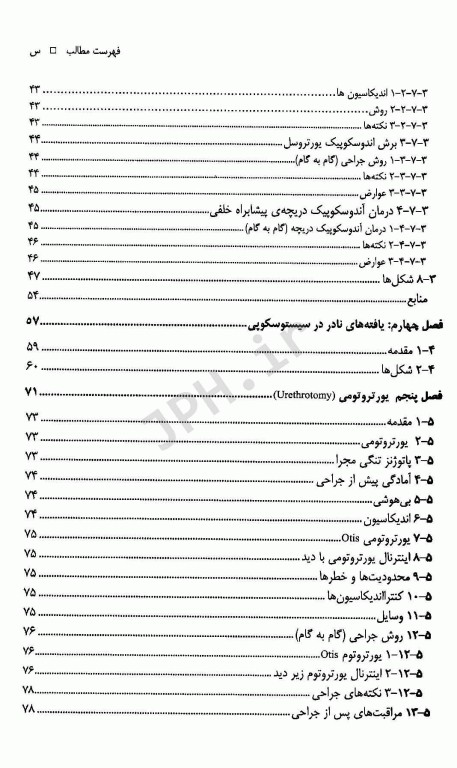 فهرست مطالب □ س
۳-۷-۲-۱ اندیکاسیون ها ۴۳
۳-۷-۲-۲ روش ۴۳
۳-۷-۲-۳ نکته‌ها ۴۳
۳-۷-۳ برش اندوسکوپیک یورتروسل ۴۴
۳-۷-۳-۱ روش جراحی (گام به گام) ۴۴
۳-۷-۳-۲ نکته‌ها ۴۴
۳-۷-۳-۳ عوارض ۴۵
۳-۷-۴ درمان آندوسکوپیک دریچه‌ی پیشابراه خلفی ۴۵
۳-۷-۴-۱ درمان آندوسکوپیک دریچه (گام به گام) ۴۵
۳-۷-۴-۲ نکته‌ها ۴۶
۳-۷-۴-۳ عوارض ۴۶
۳-۸ شکل‌ها ۴۷
منابع ۵۴
فصل چهارم: یافته‌های نادر در سیستوسکوپی ۵۷
۴-۱ مقدمه ۵۹
۴-۲ شکل‌ها ۶۰
فصل پنجم یورتروتومی (Urethrotomy) ۷۱
۵-۱ مقدمه ۷۳
۵-۲ یورتروتومی ۷۳
۵-۳ پاتوژنز تنگی مجرا ۷۳
۵-۴ آمادگی پیش از جراحی ۷۴
۵-۵ بی‌هوشی ۷۴
۵-۶ اندیکاسیون ۷۴
۵-۷ یورتروتومی Otis ۷۵
۵-۸ اینترنال یورتروتومی با دید ۷۵
۵-۹ محدودیت‌ها و خطرها ۷۵
۵-۱۰ کنترااندیکاسیون‌ها ۷۵
۵-۱۱ وسایل ۷۵
۵-۱۲ روش جراحی (گام به گام) ۷۶
۵-۱۲-۱ یورتروتوم Otis ۷۶
۵-۱۲-۲ اینترنال یورتروتوم زیر دید ۷۶
۵-۱۲-۳ نکته‌های جراحی ۷۸
۵-۱۳ مراقبت‌های پس از جراحی ۷۸
JPH.ir